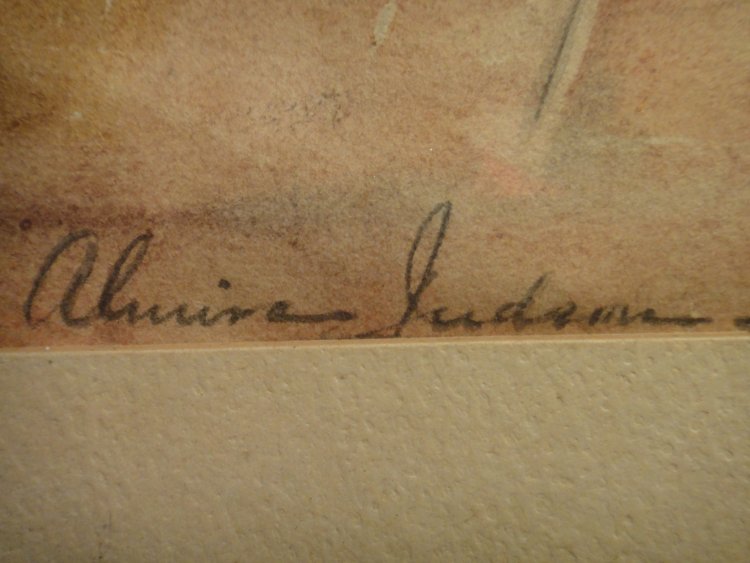 Almira Judson